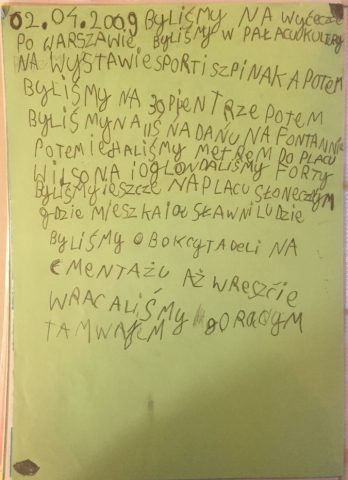 02.04.2009 BYLIŚMY NA WYCECZCE
PO WARSZAWIE BYLIŚMY W PAŁACU KULTURY
NA WYSTAWIE SPORT I SZPINAK A POTEM
BYLIŚMY NA 30 PIENTRZE POTEM
BYLIŚMY NA NA FONTANNIE
POTEM IEHALIŚMY METREM DO PLACU
WILSONA I OGLONDALIŚMY FORTY
BYLIŚMY IESZCZE NA PLACU SŁONECZNYM
GDZIE MIESZKAIOŁ SŁAWNI LUDZIE
BYLIŚMY OBOK CYTADELI NA
CMENTAŻU AŻ WRESZCIE
WRACALIŚMY GORĄCYM
TAMWAJEM